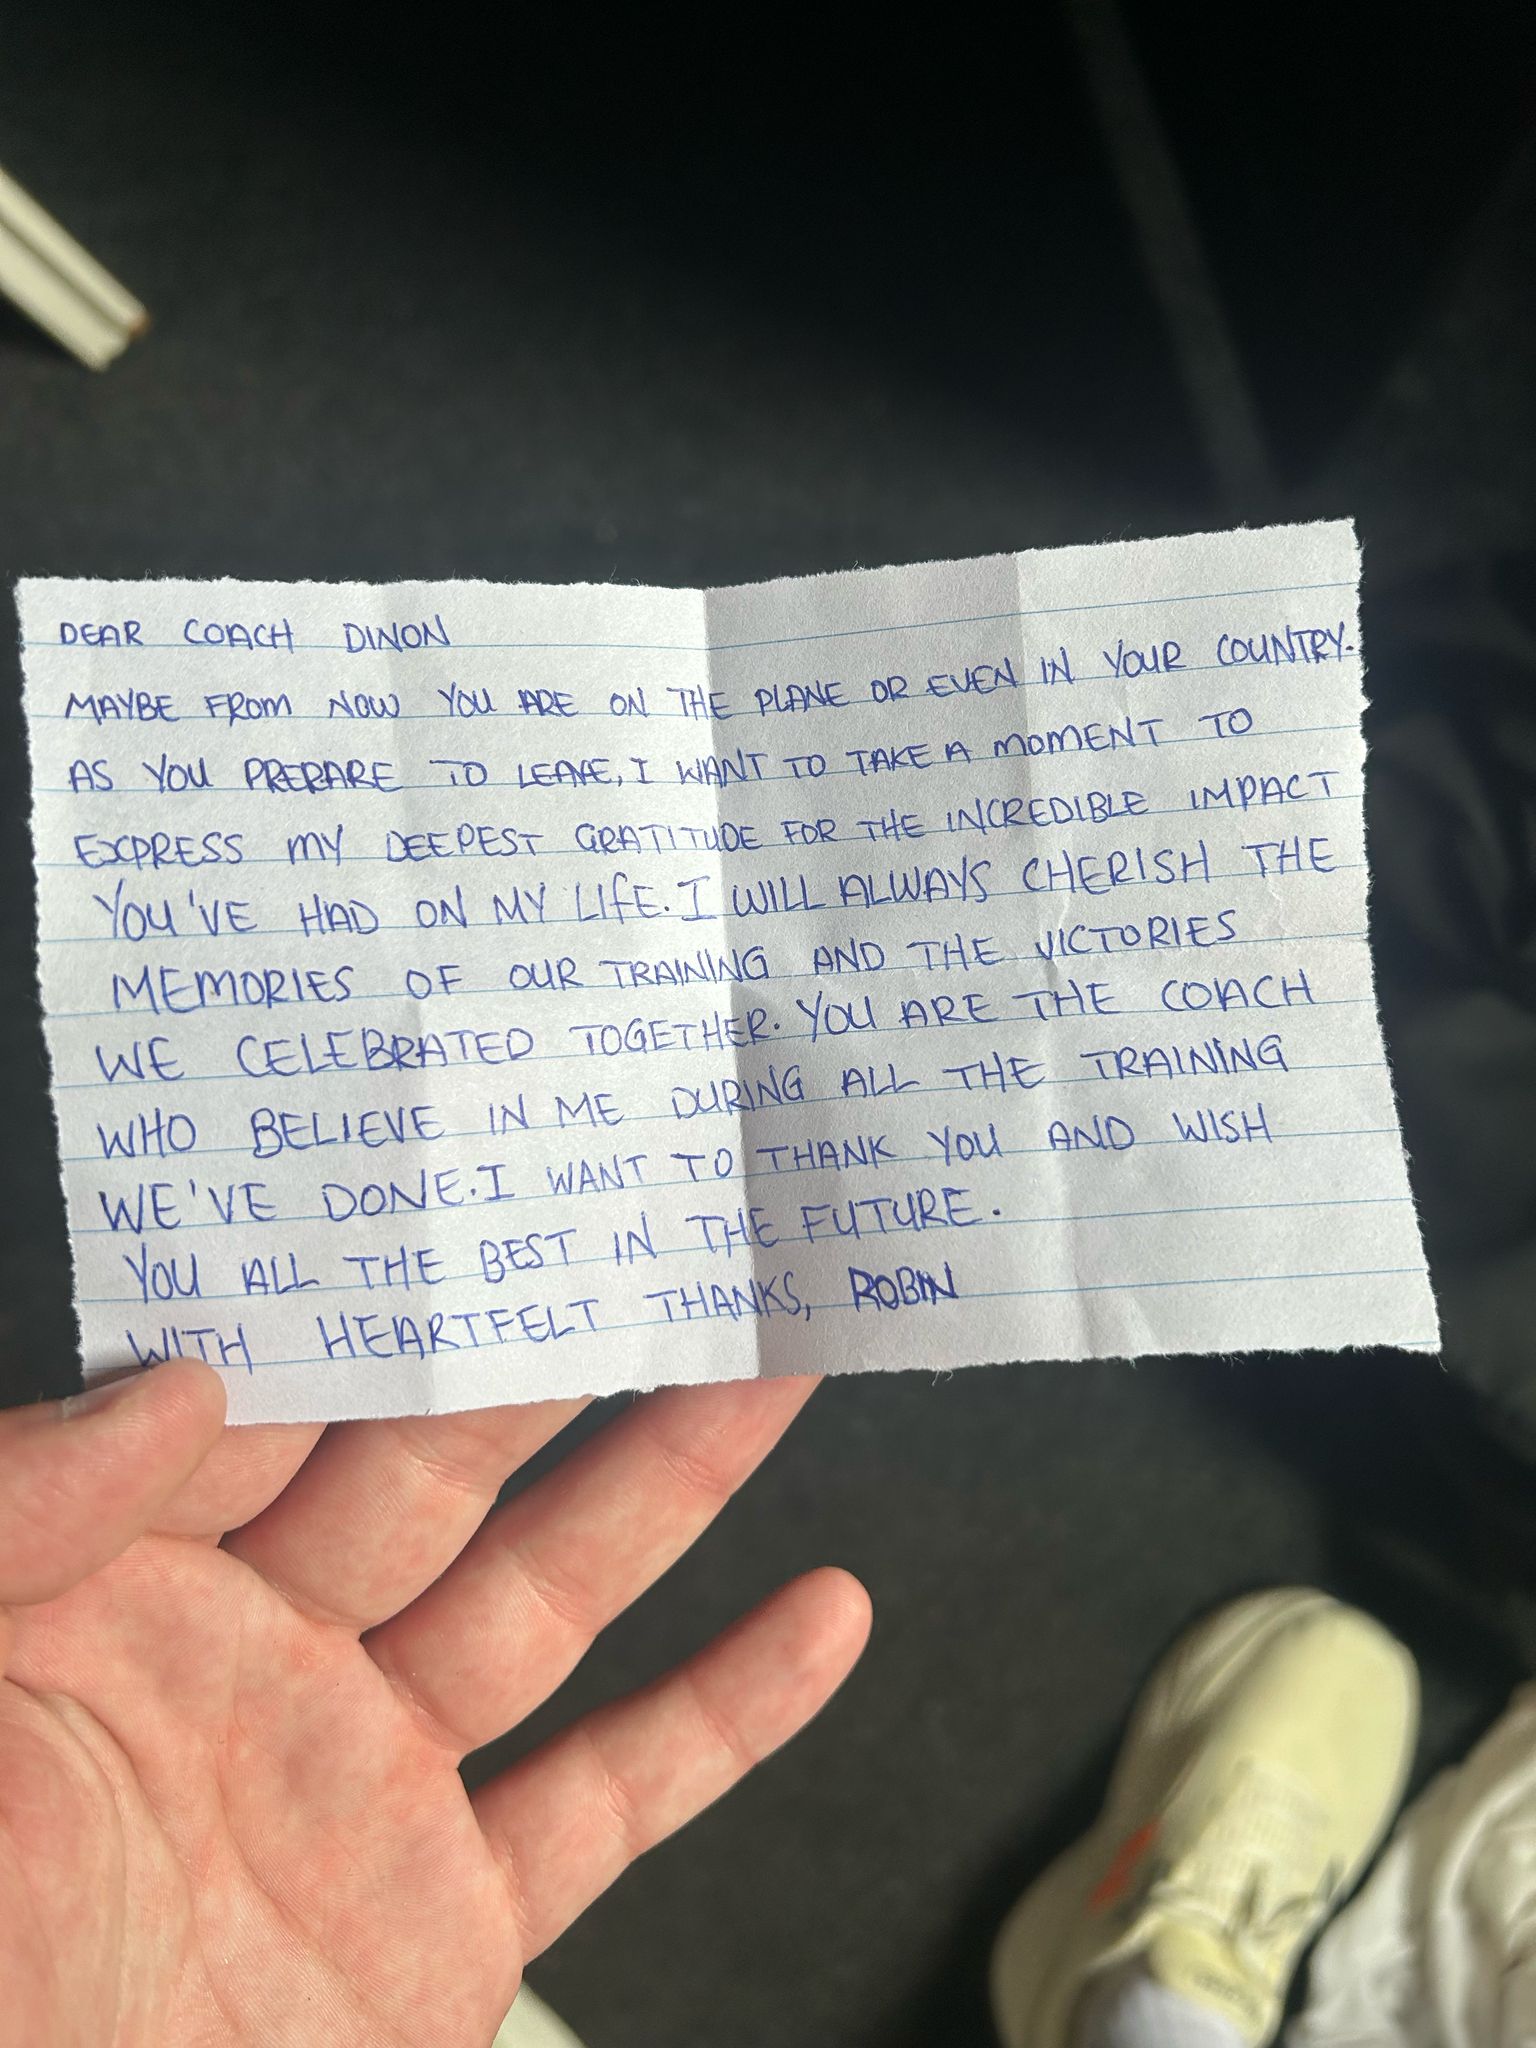 DEAR COACH DINON
MAYBE FROM NOW YOU ARE ON THE PLANE OR EVEN IN YOUR COUNTRY.
AS YOU PRERARE TO LEAVE, I WANT TO TAKE A MOMENT TO
EXPRESS MY DEEPEST GRATITUDE FOR THE INCREDIBLE IMPACT
YOU'VE HAD ON MY LIFE. I WILL ALWAYS CHERISH THE
MEMORIES OF OUR TRAINING AND THE VICTORIES
WE CELEBRATED TOGETHER. YOU ARE THE COACH
WHO BELIEVE IN ME DURING ALL THE TRAINING
WE'VE DONE. I WANT TO THANK YOU AND WISH
YOU ALL THE BEST IN THE FUTURE.
WITH HEARTFELT THANKS, ROBIN